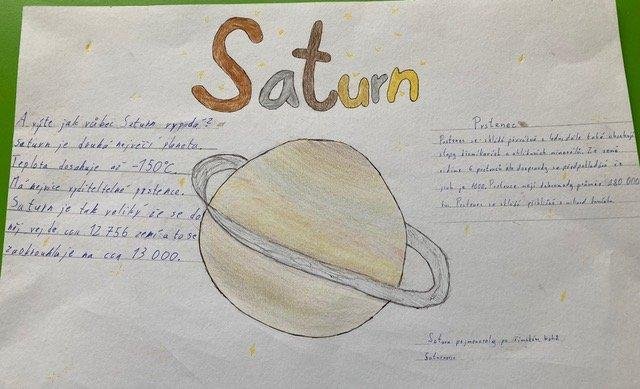 Saturn
A víte jak vůbec Saturn vypadá?
saturn je druhá největší planeta.
Teplota dosahuje až -150°C.
Má nejvíce viditelné prstence.
Saturn je tak veliký že se do
něj vejde cca 12 756 zemí a to se
zaokrouhluje na cca 13 000.
Prstenec
Prstenec se skládá převážně z ledu, dále také obsahuje
stopy křemičitých a uhlíkatých minerálů. Ze země
vidíme 6 prstenců ale doopravdy se předpokládá že
jich je 1000. Prstence mají dohromady průměr 280 000
km. Prstenec se skládá přibližně z miliard
Saturn pojmenovaly po římském bohu
Saturnovi